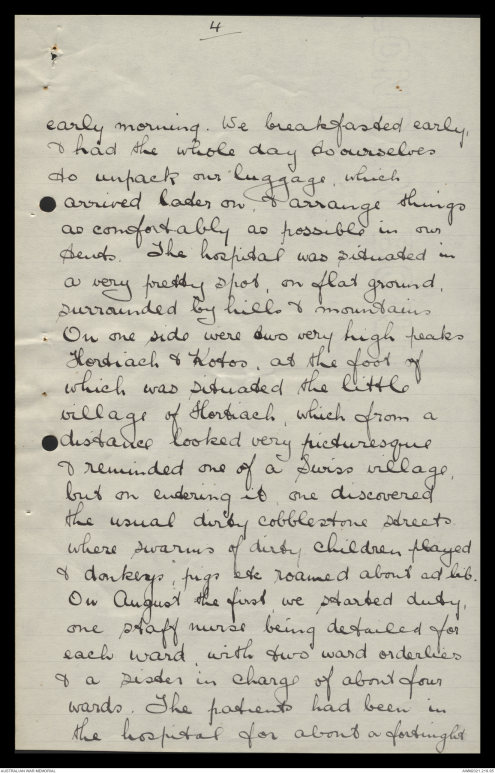 4
early morning. We breakfasted early,
& had the whole day to ourselves
to unpack our luggage, which
arrived later on, & arrange things
as comfortably as possible in our
tents. The hospital was situated in
a very pretty spot, on flat ground,
surrounded by hills & mountains
On one side were two very high peaks
Hortiach & Kotos, at the foot of
which was situated the little
village of Hortiach, which from a
distance looked very picturesque
& reminded one of a Swiss village,
but on entering it, one discovered
the usual dirty cobblestone streets
where swarms of dirty children played
& donkeys, pigs etc roamed about ad lib.
On August the first, we started duty,
one staff nurse being detailed for
each ward, with two ward orderlies
& a sister in charge of about four
wards. The patients had been in
the hospital for about a fortnight
AUSTRALIAN WAR MEMORIAL